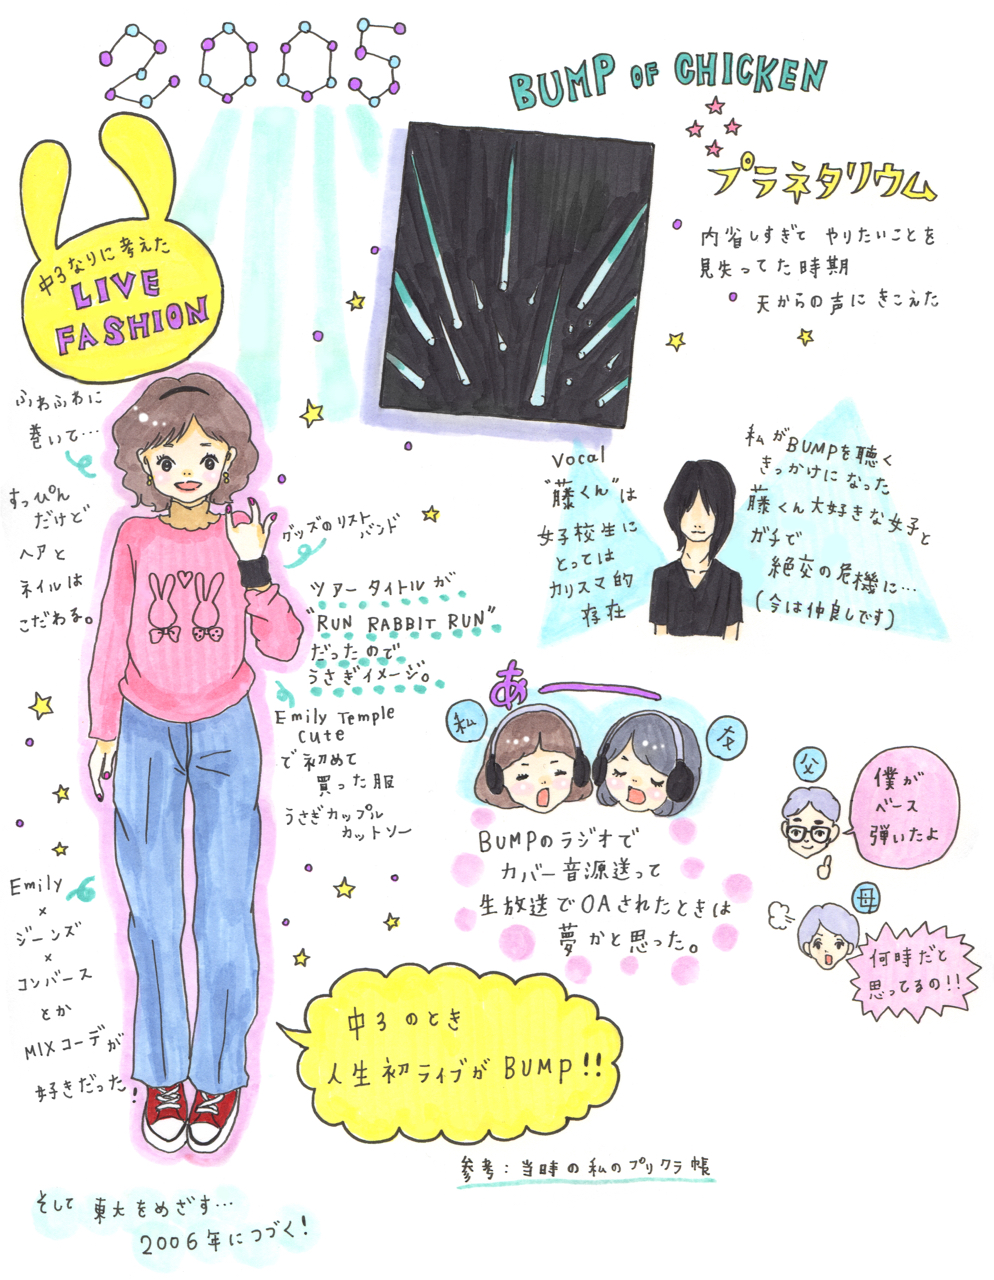 2005
BUMP OF CHICKEN
プラネタリウム
内省しすぎて やりたいことを
見失ってた時期
天からの声にきこえた
中3なりに考えた
LIVE
FASHION
ふわふわに
巻いて…
すっぴん
だけど
ヘアと
ネイルは
こだわる。
グッズのリスト
バンド
ツアータイトルが
"RUN RABBIT RUN"
だったので
うさぎイメージ。
Emily Temple
cute
で初めて
買った服
うさぎカップル
カットソー
Emily
×
ジーンズ
×
コンバース
とか
MIXコーデが
好きだった!
vocal
"藤くん"は
女子校生に
とっては
カリスマ的
存在
私がBUMPを聴く
きっかけになった
藤くん大好きな女子と
ガチで
絶交の危機に…
(今は仲良しです)
あー
私
友
BUMPのラジオで
カバー音源送って
生放送でOAされたときは
夢かと思った。
父
僕が
ベース
弾いたよ
母
何時だと
思ってるの!!
中3のとき
人生初ライブがBUMP!!
参考:当時の私のプリクラ帳
そして 東大をめざす…
2006年につづく!